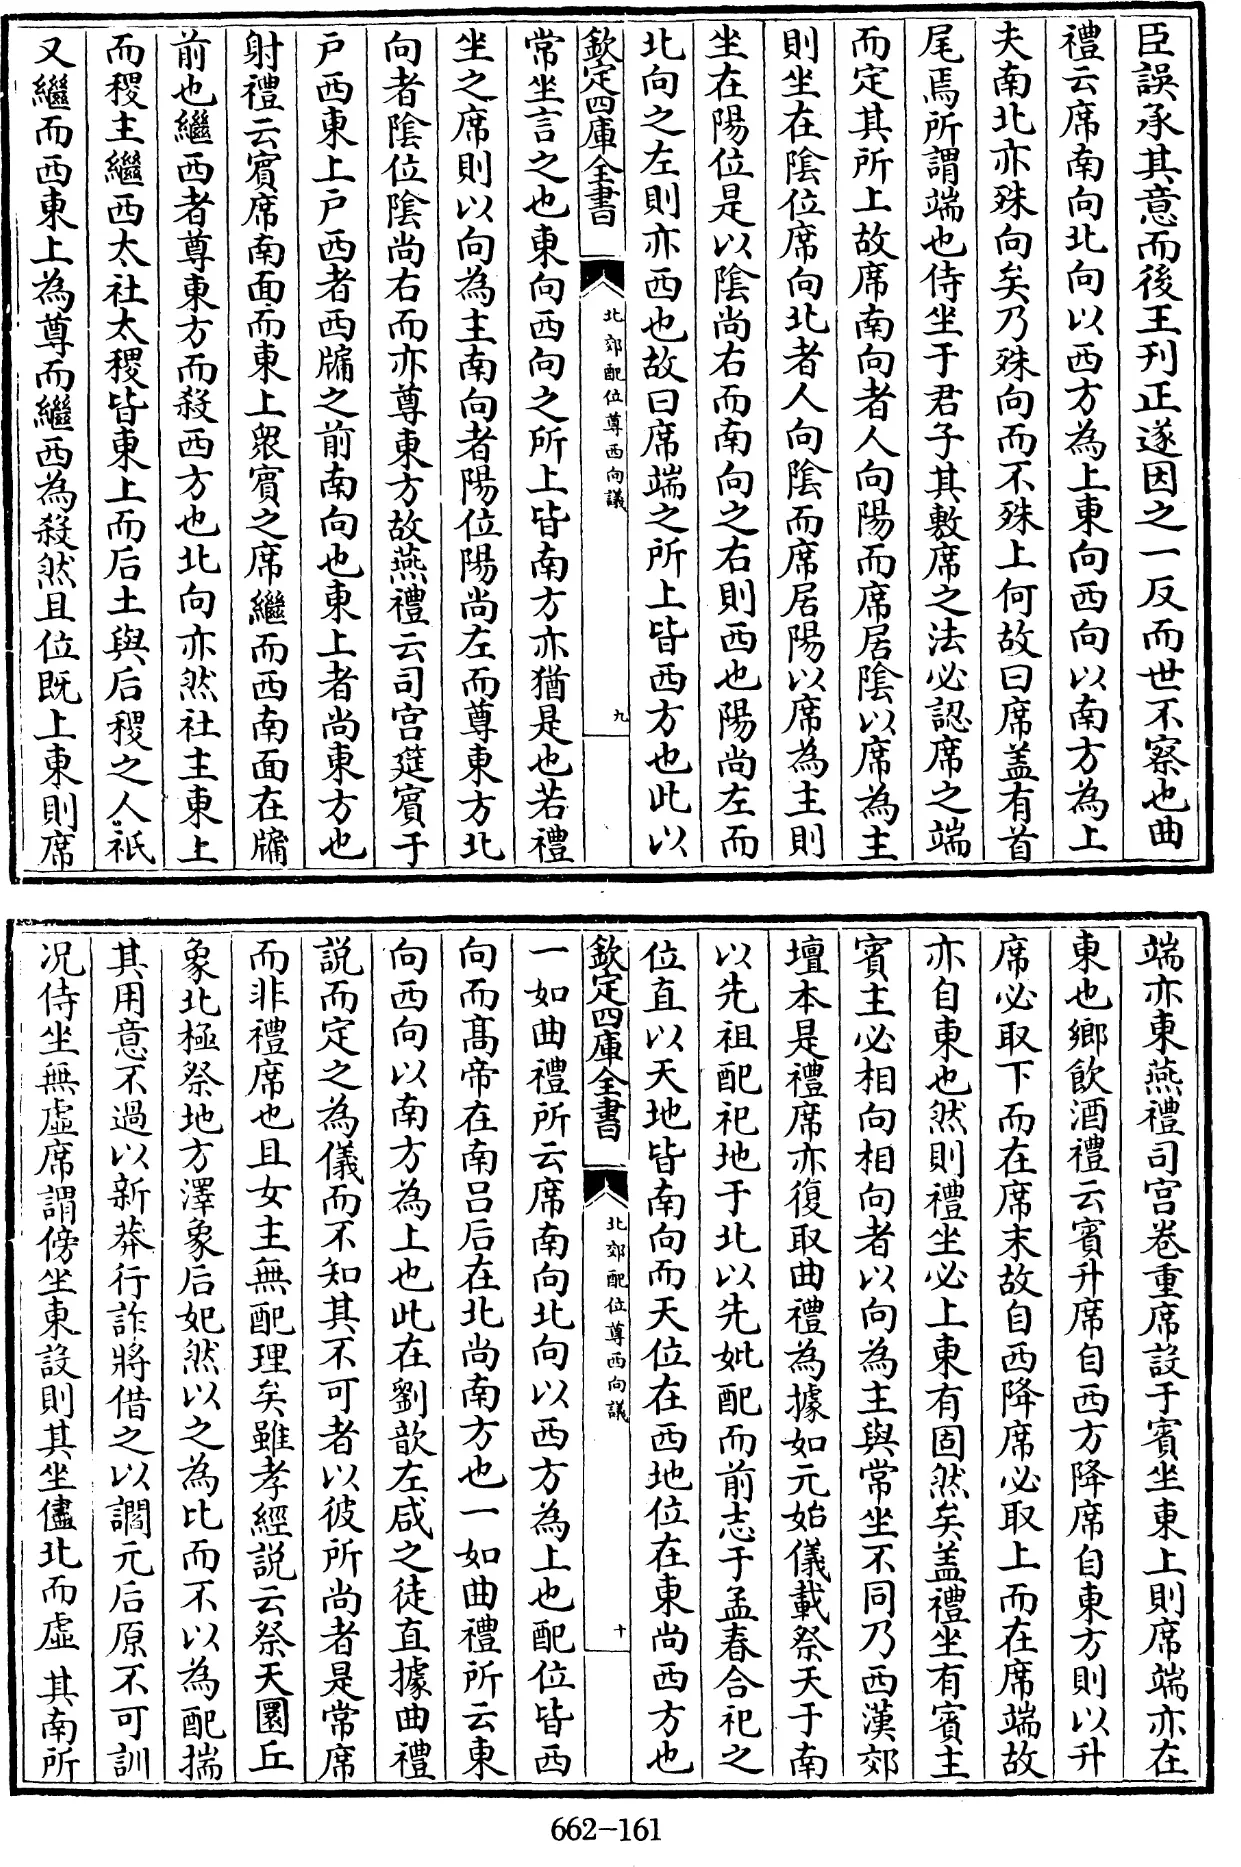 臣誤承其意而後王刋正遂因之一反而世不察也曲
禮云席南向北向以西方為上東向西向以南方為上
夫南北亦殊向矣乃殊向而不殊上何故曰席盖有首
尾焉所謂端也侍坐于君子其敷席之法必認席之端
而定其所上故席南向者人向陽而席居陰以席為主
則坐在陰位席向北者人向陰而席居陽以席為主則
坐在陽位是以陰尚右而南向之右則西也陽尚左而
北向之左則亦西也故曰席端之所上皆西方也此以
欽定四庫全書
北郊配位尊西向議
九
常坐言之也東向西向之所上皆南方亦猶是也若禮
坐之席則以向為主南向者陽位陽尚左而尊東方北
向者陰位陰尚右而亦尊東方故燕禮云司宫筵賓于
户西東上户西者西牖之前南向也東上者尚東方也
射禮云賓席南面而東上衆賓之席繼而西南面在牖
前也繼西者尊東方而殺西方也北向亦然社主東上
而稷主繼西太社太稷皆東上而后土與后稷之人祇
又繼而西東上為尊而繼西為殺然且位既上東則席
端亦東燕禮司宫卷重席設于賓坐東上則席端亦在
東也鄉飲酒禮云賓升席自西方降席自東方則以升
席必取下而在席末故自西降席必取上而在席端故
亦自東也然則禮坐必上東有固然矣盖禮坐有賓主
賓主必相向相向者以向為主與常坐不同乃西漢郊
壇本是禮席亦復取曲禮為據如元始儀載祭天于南
以先祖配祀地于北以先妣配而前志于孟春合祀之
位直以天地皆南向而天位在西地位在東尚西方也
欽定四庫全書
北郊配位尊西向議
十
一如曲禮所云席南向北向以西方為上也配位皆西
向而髙帝在南吕后在北尚南方也一如曲禮所云東
向西向以南方為上也此在劉歆左咸之徒直據曲禮
説而定之為儀而不知其不可者以彼所尚者是常席
而非禮席也且女主無配理矣雖孝經説云祭天圜丘
象北極祭地方澤象后妃然以之為比而不以為配揣
其用意不過以新莽行詐將借之以讕元后原不可訓
况侍坐無虚席謂傍坐東設則其坐儘北而虚其南所
662-161